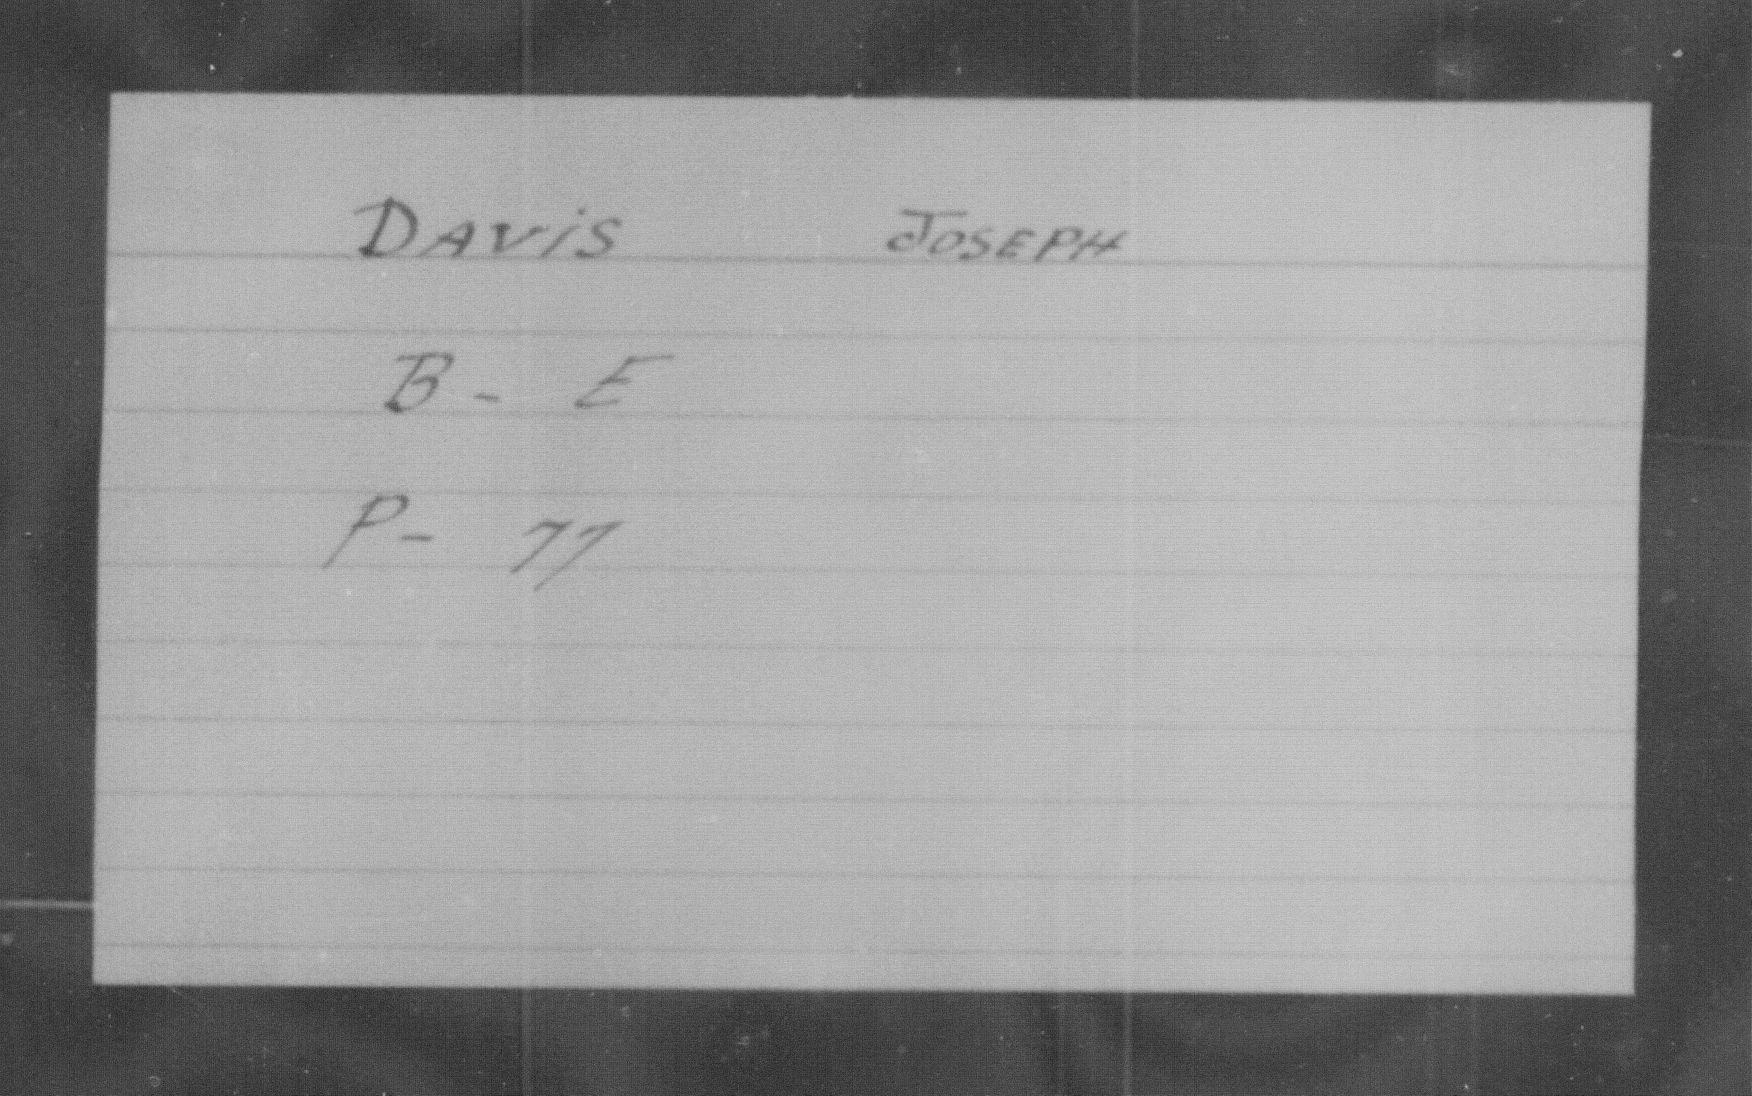 DAVIS JOSEPH
B - E
P - 77